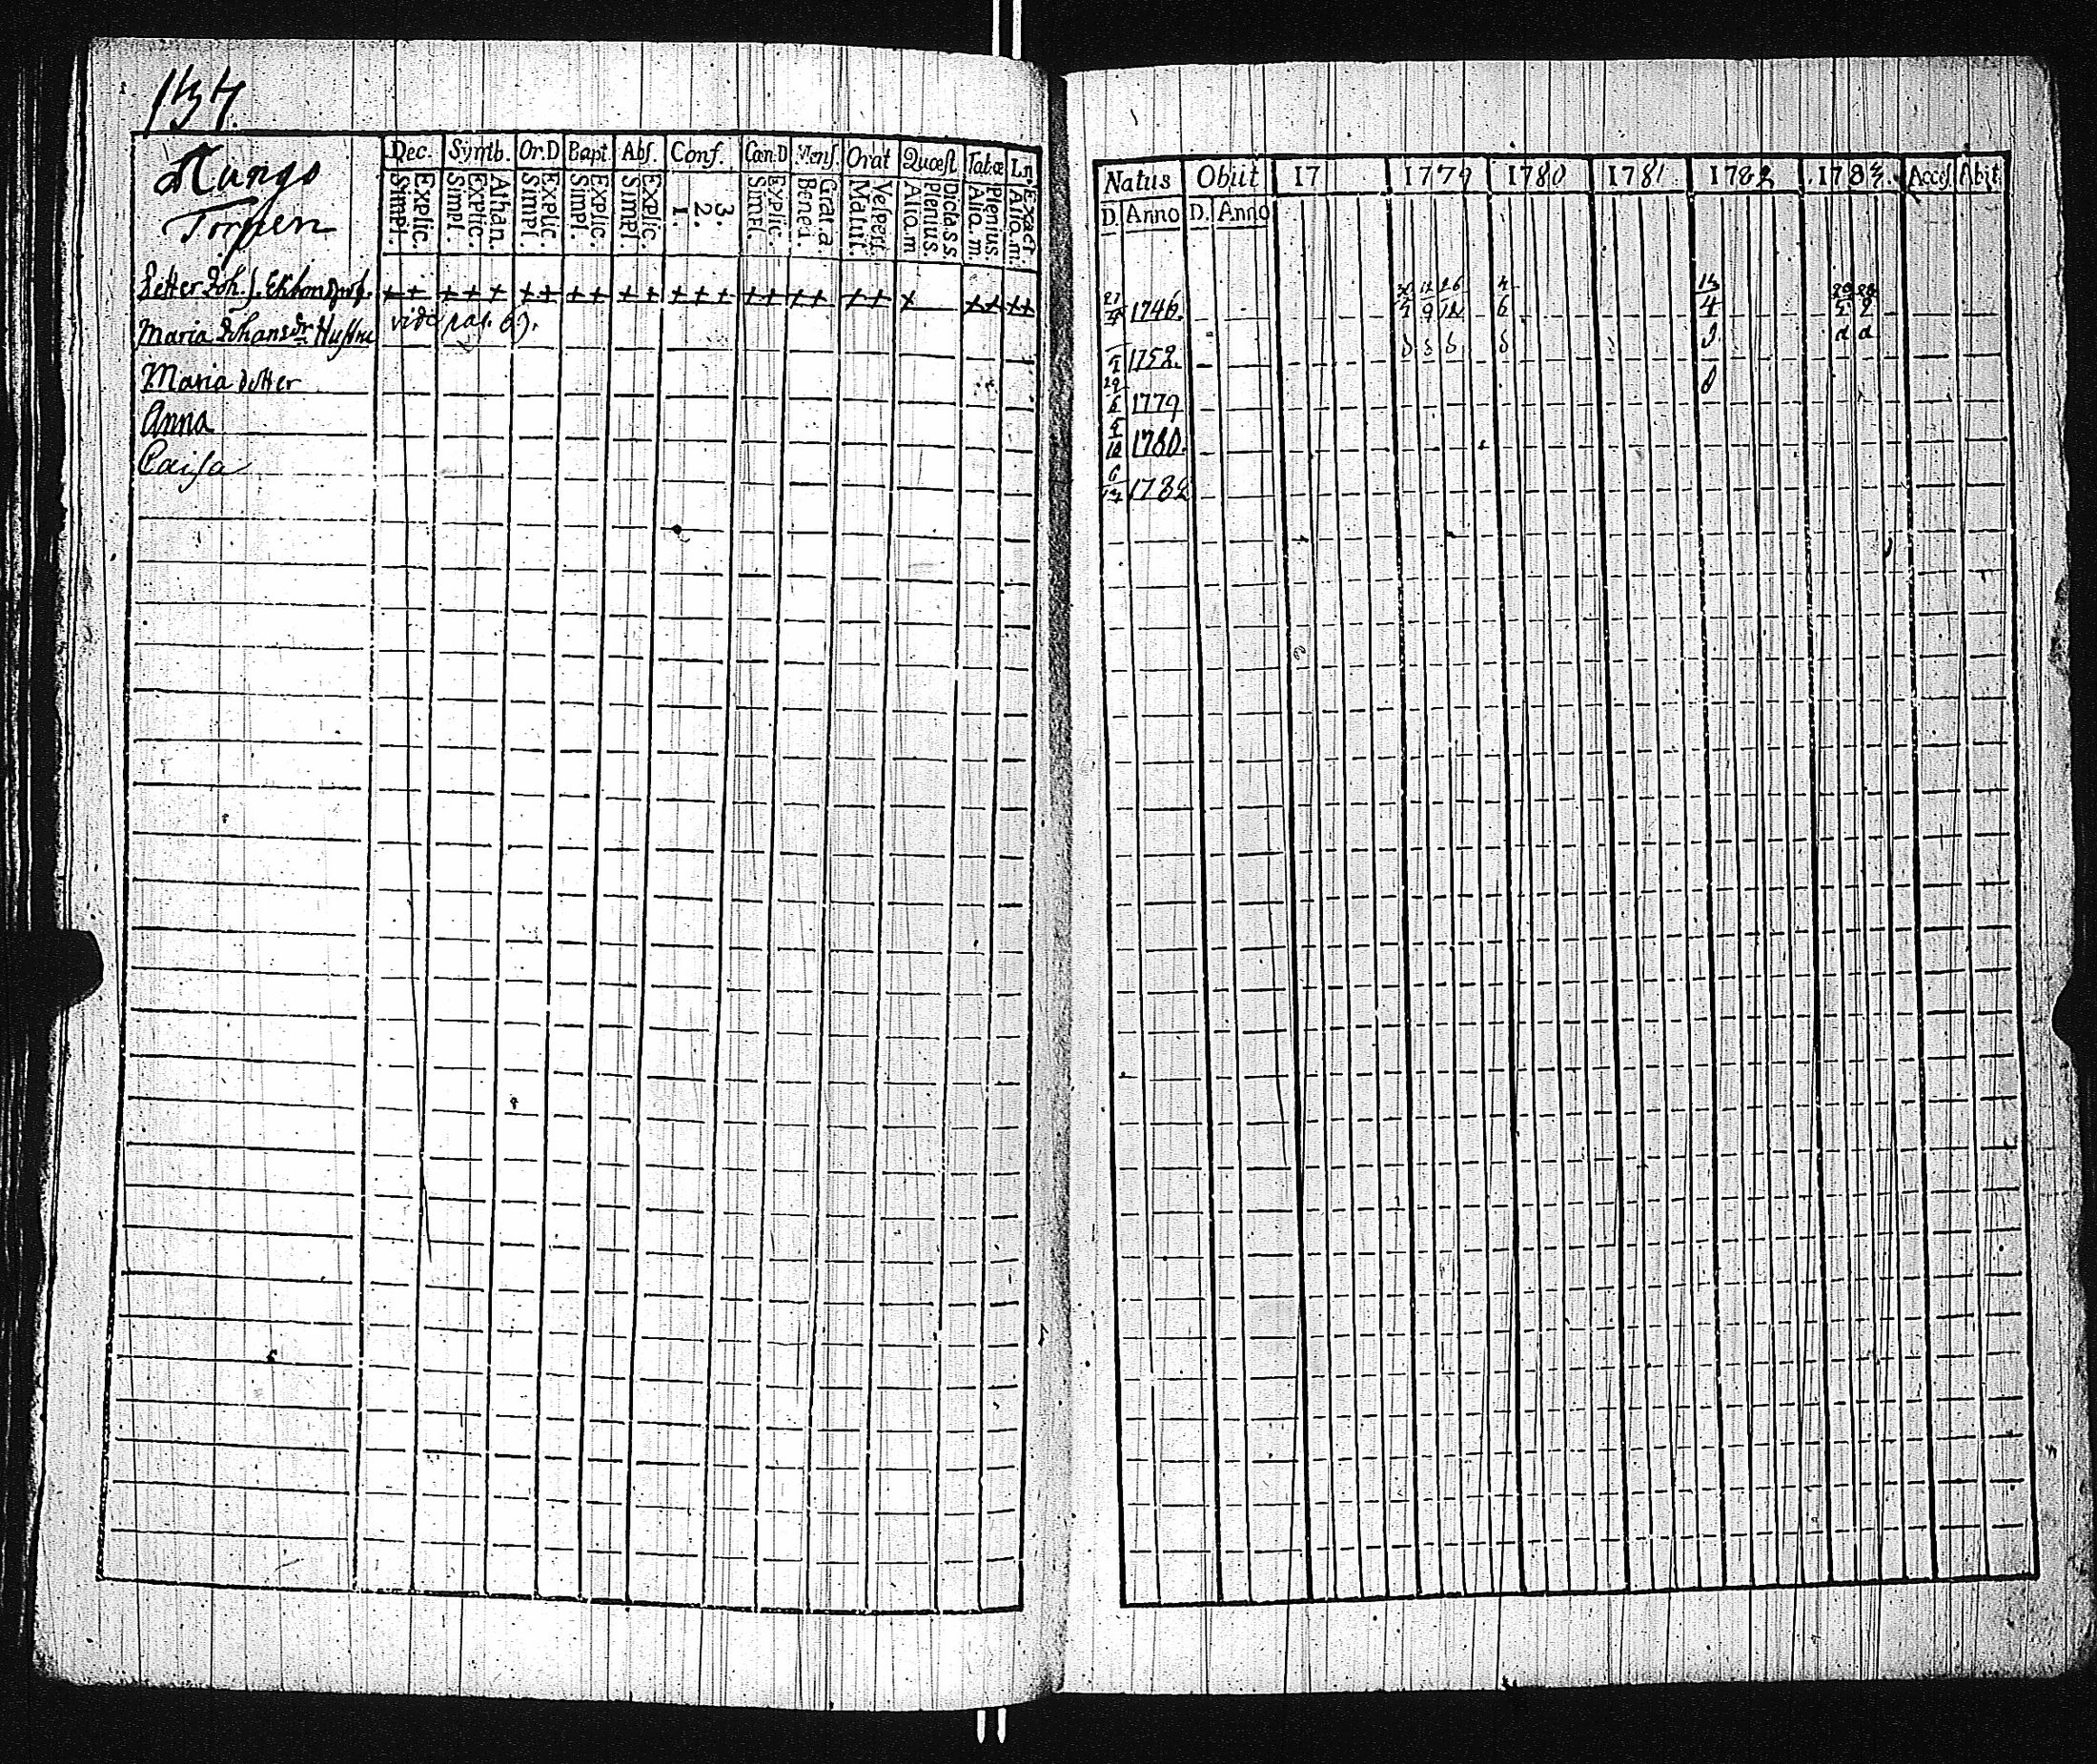 134.
Mungo
Torpen
Dec. Symb. Or.D Bapt. Abs. Conf. Can:D Mens. Orat Quæst Tab.æ
Simpl. Explic. Simpl. Explic. Athan. Simpl. Explic. Simpl. Explic. Simpl. Explic. 1. 2. 3. Simpl. Explic. Bened. Grat.a Matut. Vespert. Alio.m Plenius. Dicta.s.s. Alio.m Plenius. Alio.m. Exact
Petter Joh. s. Ekbom
+ + + + + + + + + + + + + + + + + + + + + + + + +
Maria Johans dr Hustru vide pag. 69.
Maria dotter
Anna
Caisa
Natus Obiit 17 1779 1780 1781 1782 1783. Acces. Abit
D. Anno D. Anno
1746.
1752.
29/6 1779
1780.
1782